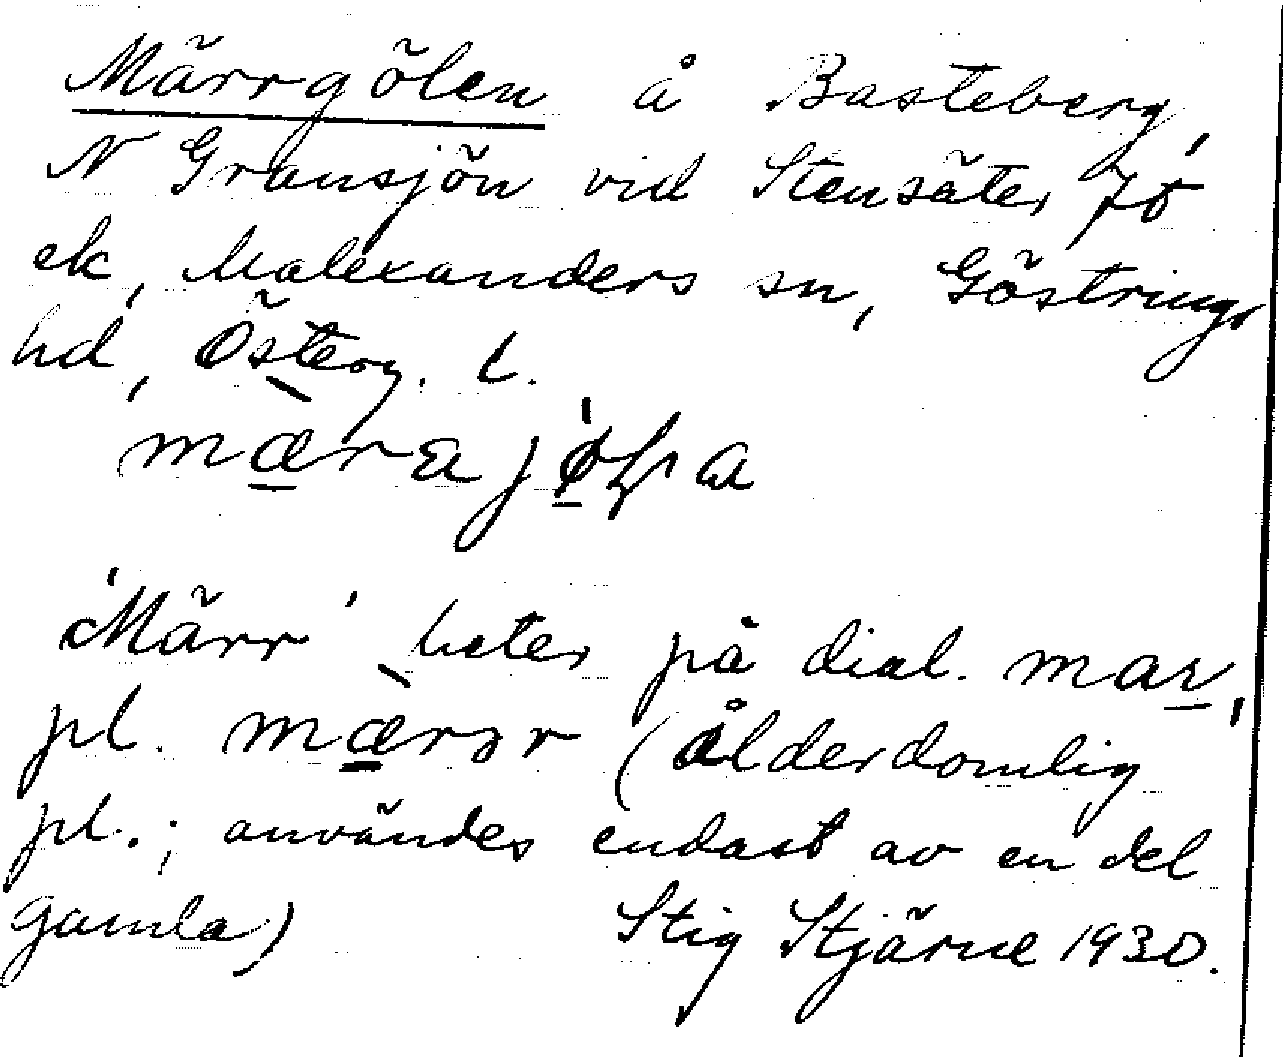 Märrgölen å Basteberg,
N Gransjön vid Stensäter 7ö
ek, Malexanders sn, Göstrings
hd, Österg. l.
mæra
'Märr' heter på dial. mar,
pl. mærər (ålderdomlig
pl.; användes endast av en del
gamla) Stig Stjärne 1930.